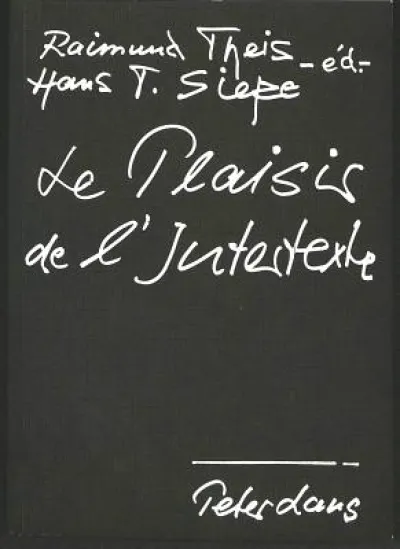 Raimund Theis
Hans T. Siepe - éd.-
Le Plaisir
de l'Intertexte
Peter Lang